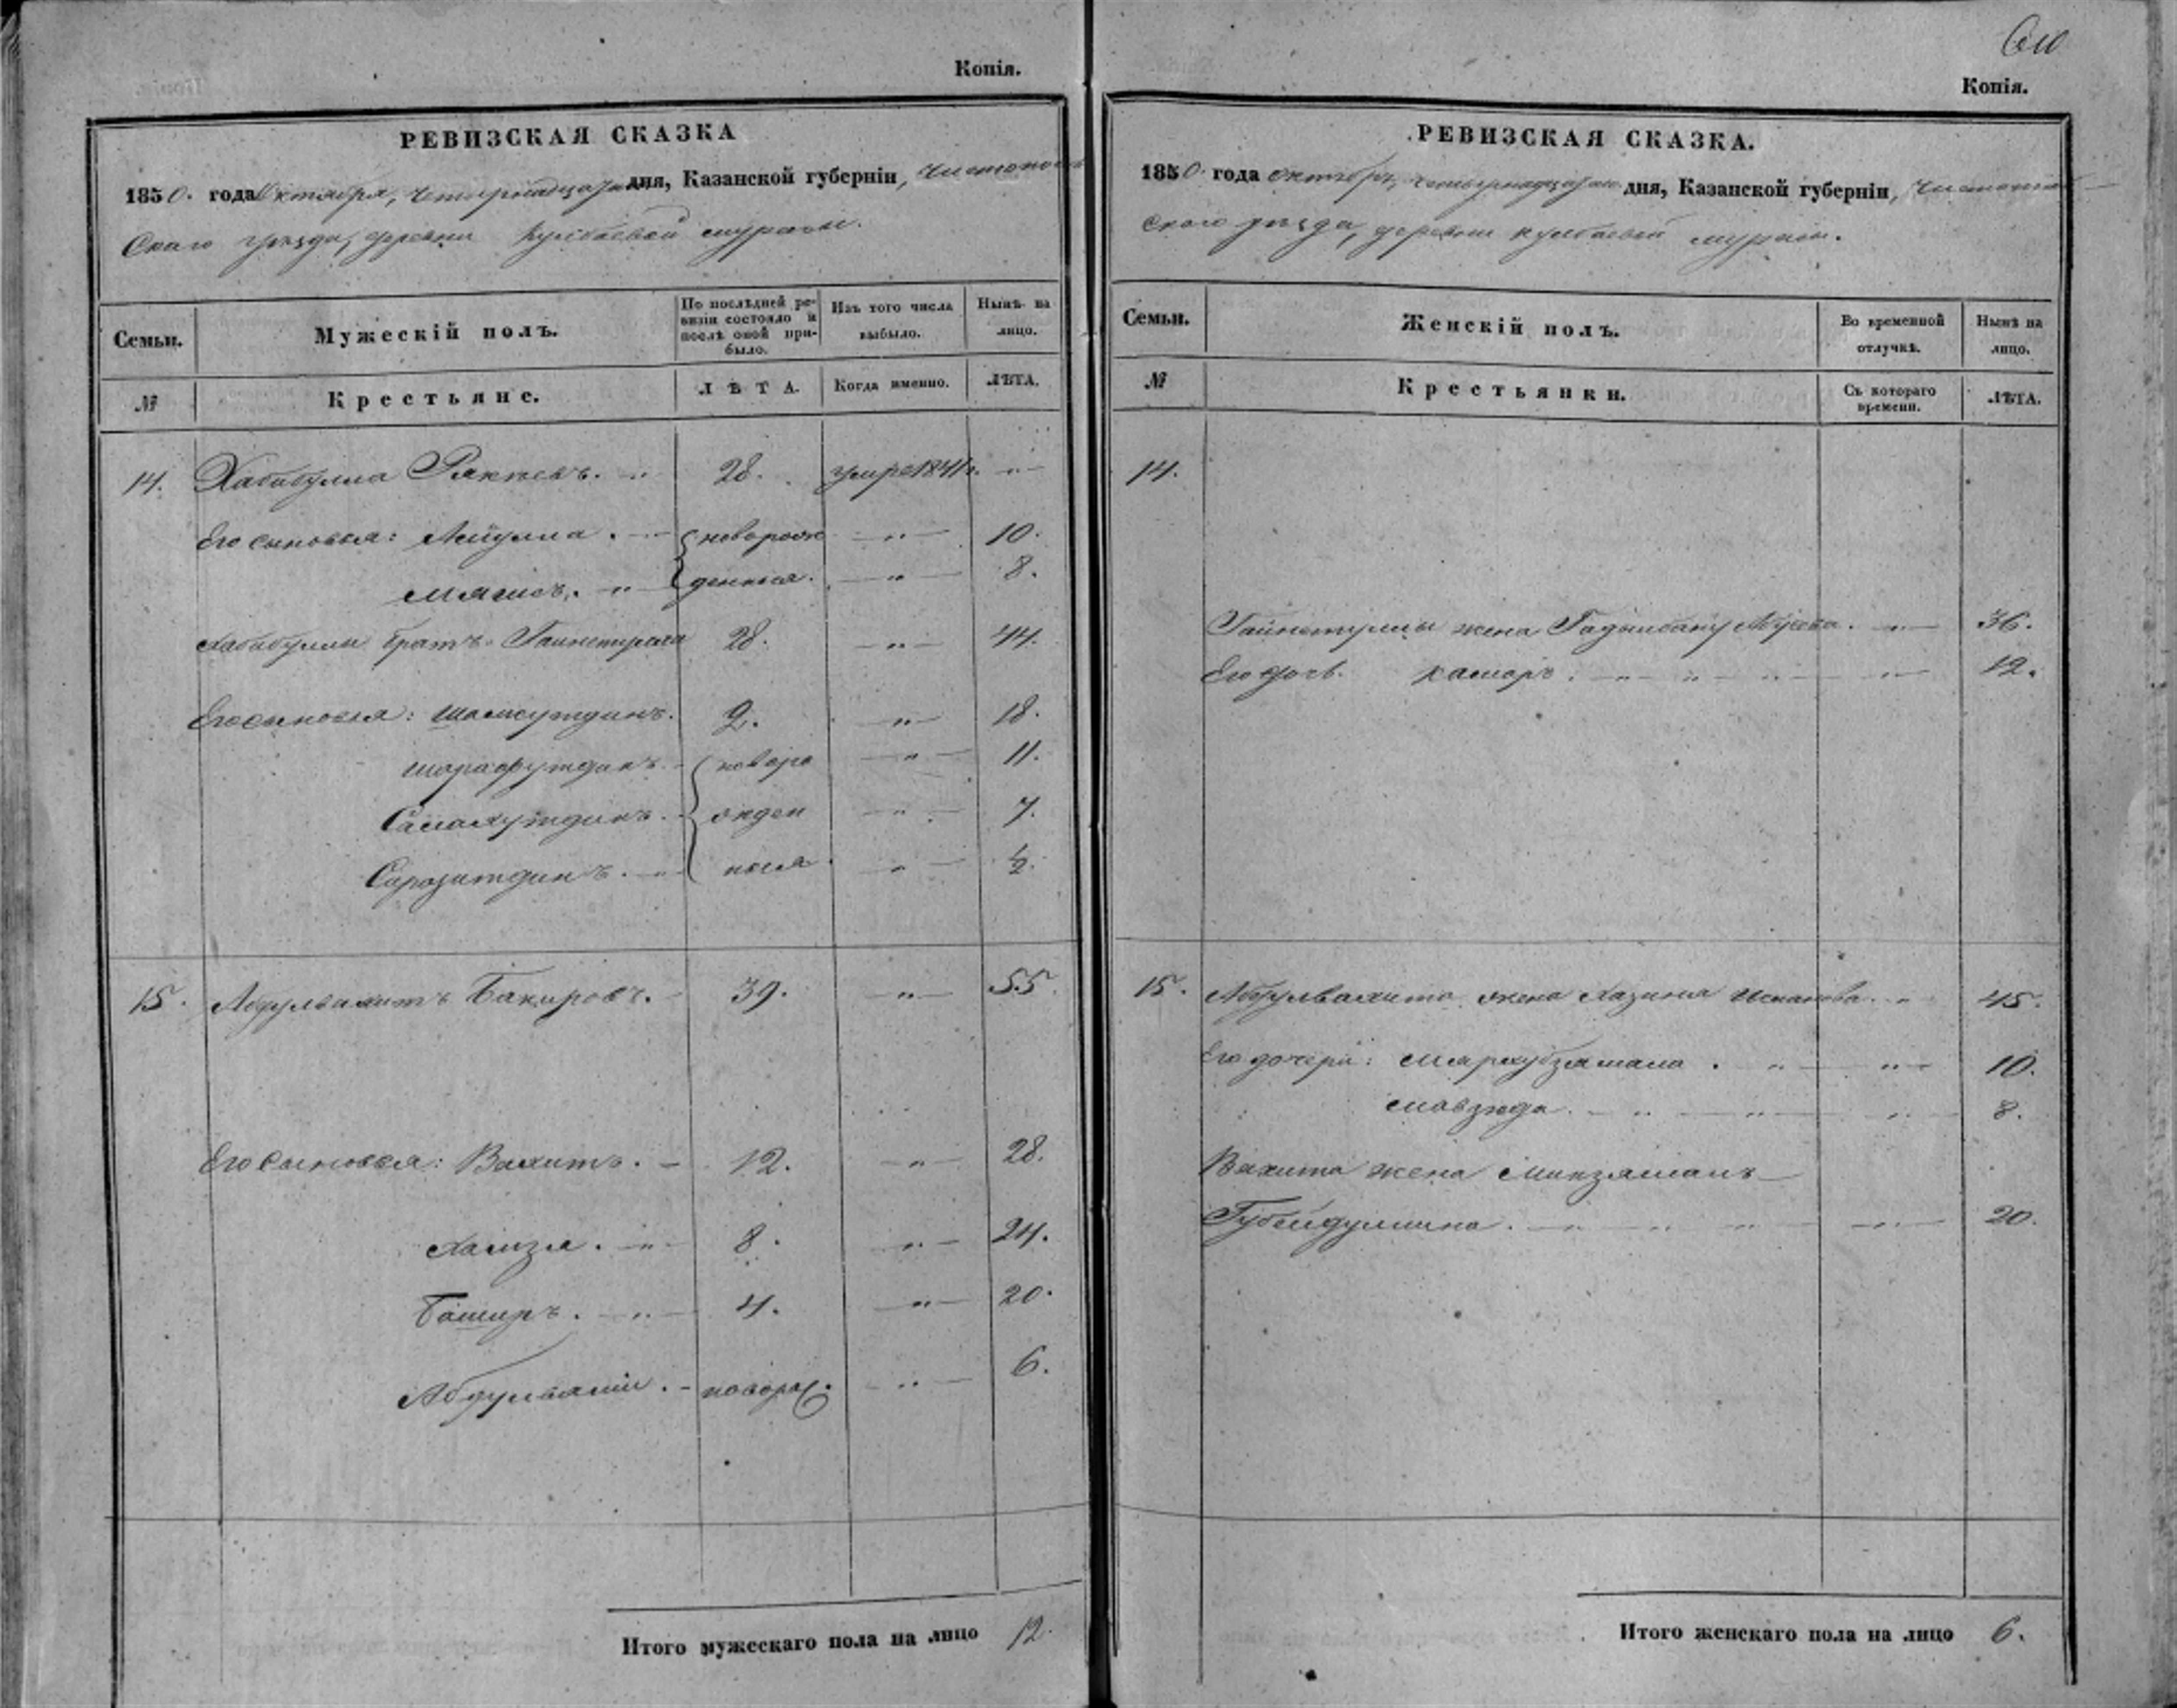 Копія.
РЕВИЗСКАЯ СКАЗКА
1850. года Октября, четырнадцатаго дня, Казанской губерніи, Чистополь
скаго уѣзда, деревни Кулбаевой мурасы.
Семьи.
Мужескій полъ.
По послѣдней ре-
визіи состояло и
послѣ оной при-
было.
Изъ того числа
выбыло.
Нынѣ на
лицо.
№
Крестьяне.
ЛѢТА.
Когда именно.
ЛѢТА.
14. Хабибулла 28. умре 1841 г. "
Его сыновья: новорож " 10.
денныя. " 8.
Хабибуллы братъ 28. " 44.
Его сыновья: Шамсутдинъ. 2. " 18.
Шарафутдинъ новоро " 11.
Самалутдинъ. жден " 7.
Сиразитдинъ. ныя " ½.
15. Абдулвахитъ Бакировъ. 39. " 55.
Его сыновья: Вахитъ. 12. " 28.
Хамзя. " 8. " 24.
Баширъ. " 4. " 20.
новорож. " 6.
Итого мужескаго пола на лицо 12.
610
Копія.
РЕВИЗСКАЯ СКАЗКА.
1850 года октября, четырнадцатаго дня, Казанской губерніи, Чистополь
скаго уѣзда, деревни кулбаевой мурасы.
Семьи.
Женскій полъ.
Во временной
отлучкѣ.
Нынѣ на
лицо.
№
Крестьянки.
Съ котораго
времени.
ЛѢТА.
14.
жена 36.
Его дочь Камаръ. " " " " 12.
15. Абдулвахита жена Хазиня " 45.
Его дочери: " " 10.
Мавзюда. " " " 8.
Вахита жена Минзяманъ
Губейдуллина. " " " " 20.
Итого женскаго пола на лицо 6.